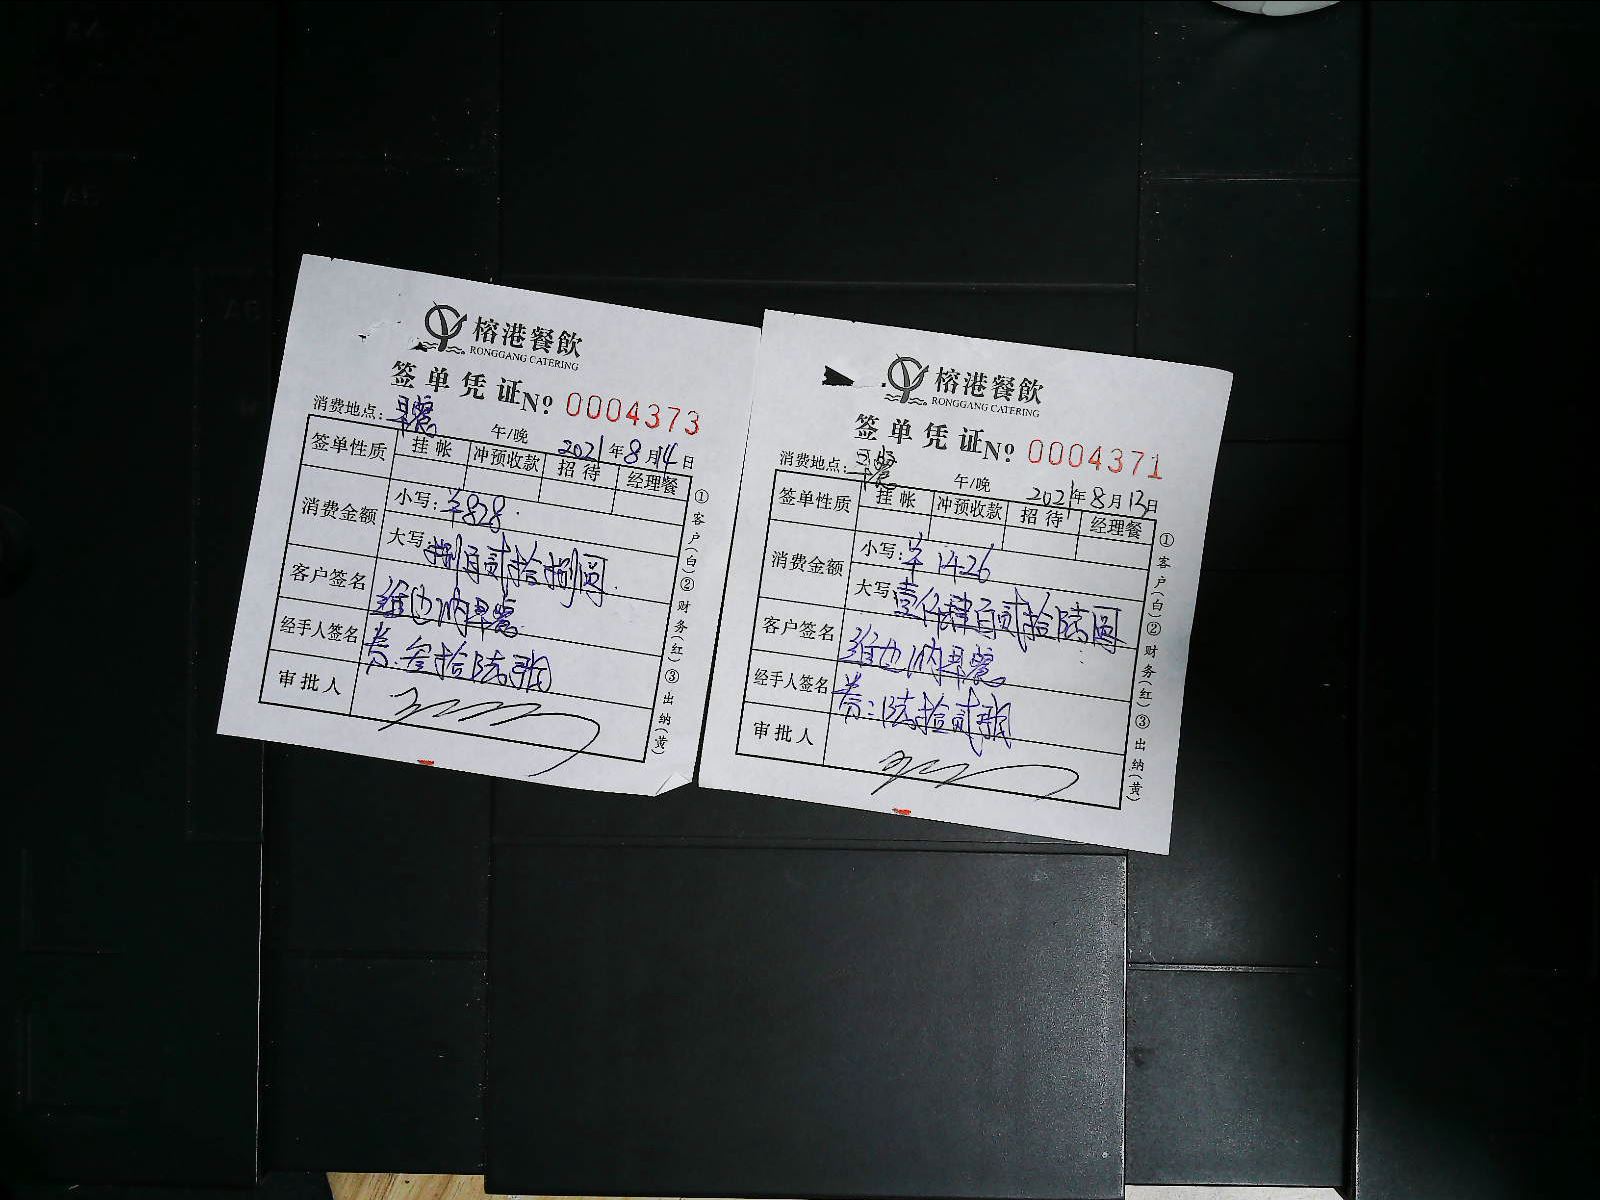 榕港餐飲
RONGGANG CATERING
签单凭证№ 0004373
消费地点：早餐 午/晚 2021年8月14日
签单性质 挂帐 冲预收款 招待 经理餐
消费金额 小写：¥828.
大写：捌百贰拾捌圆.
客户签名 维也纳早餐
经手人签名 券：叁拾陆张
审批人
①客户(白)②财务(红)③出纳(黄)
榕港餐飲
RONGGANG CATERING
签单凭证№ 0004371
消费地点：早餐 午/晚 2021年8月13日
签单性质 挂帐 冲预收款 招待 经理餐
消费金额 小写：¥1426
大写：壹仟肆百贰拾陆圆
客户签名 维也纳早餐
经手人签名 券：陆拾贰张
审批人
①客户(白)②财务(红)③出纳(黄)